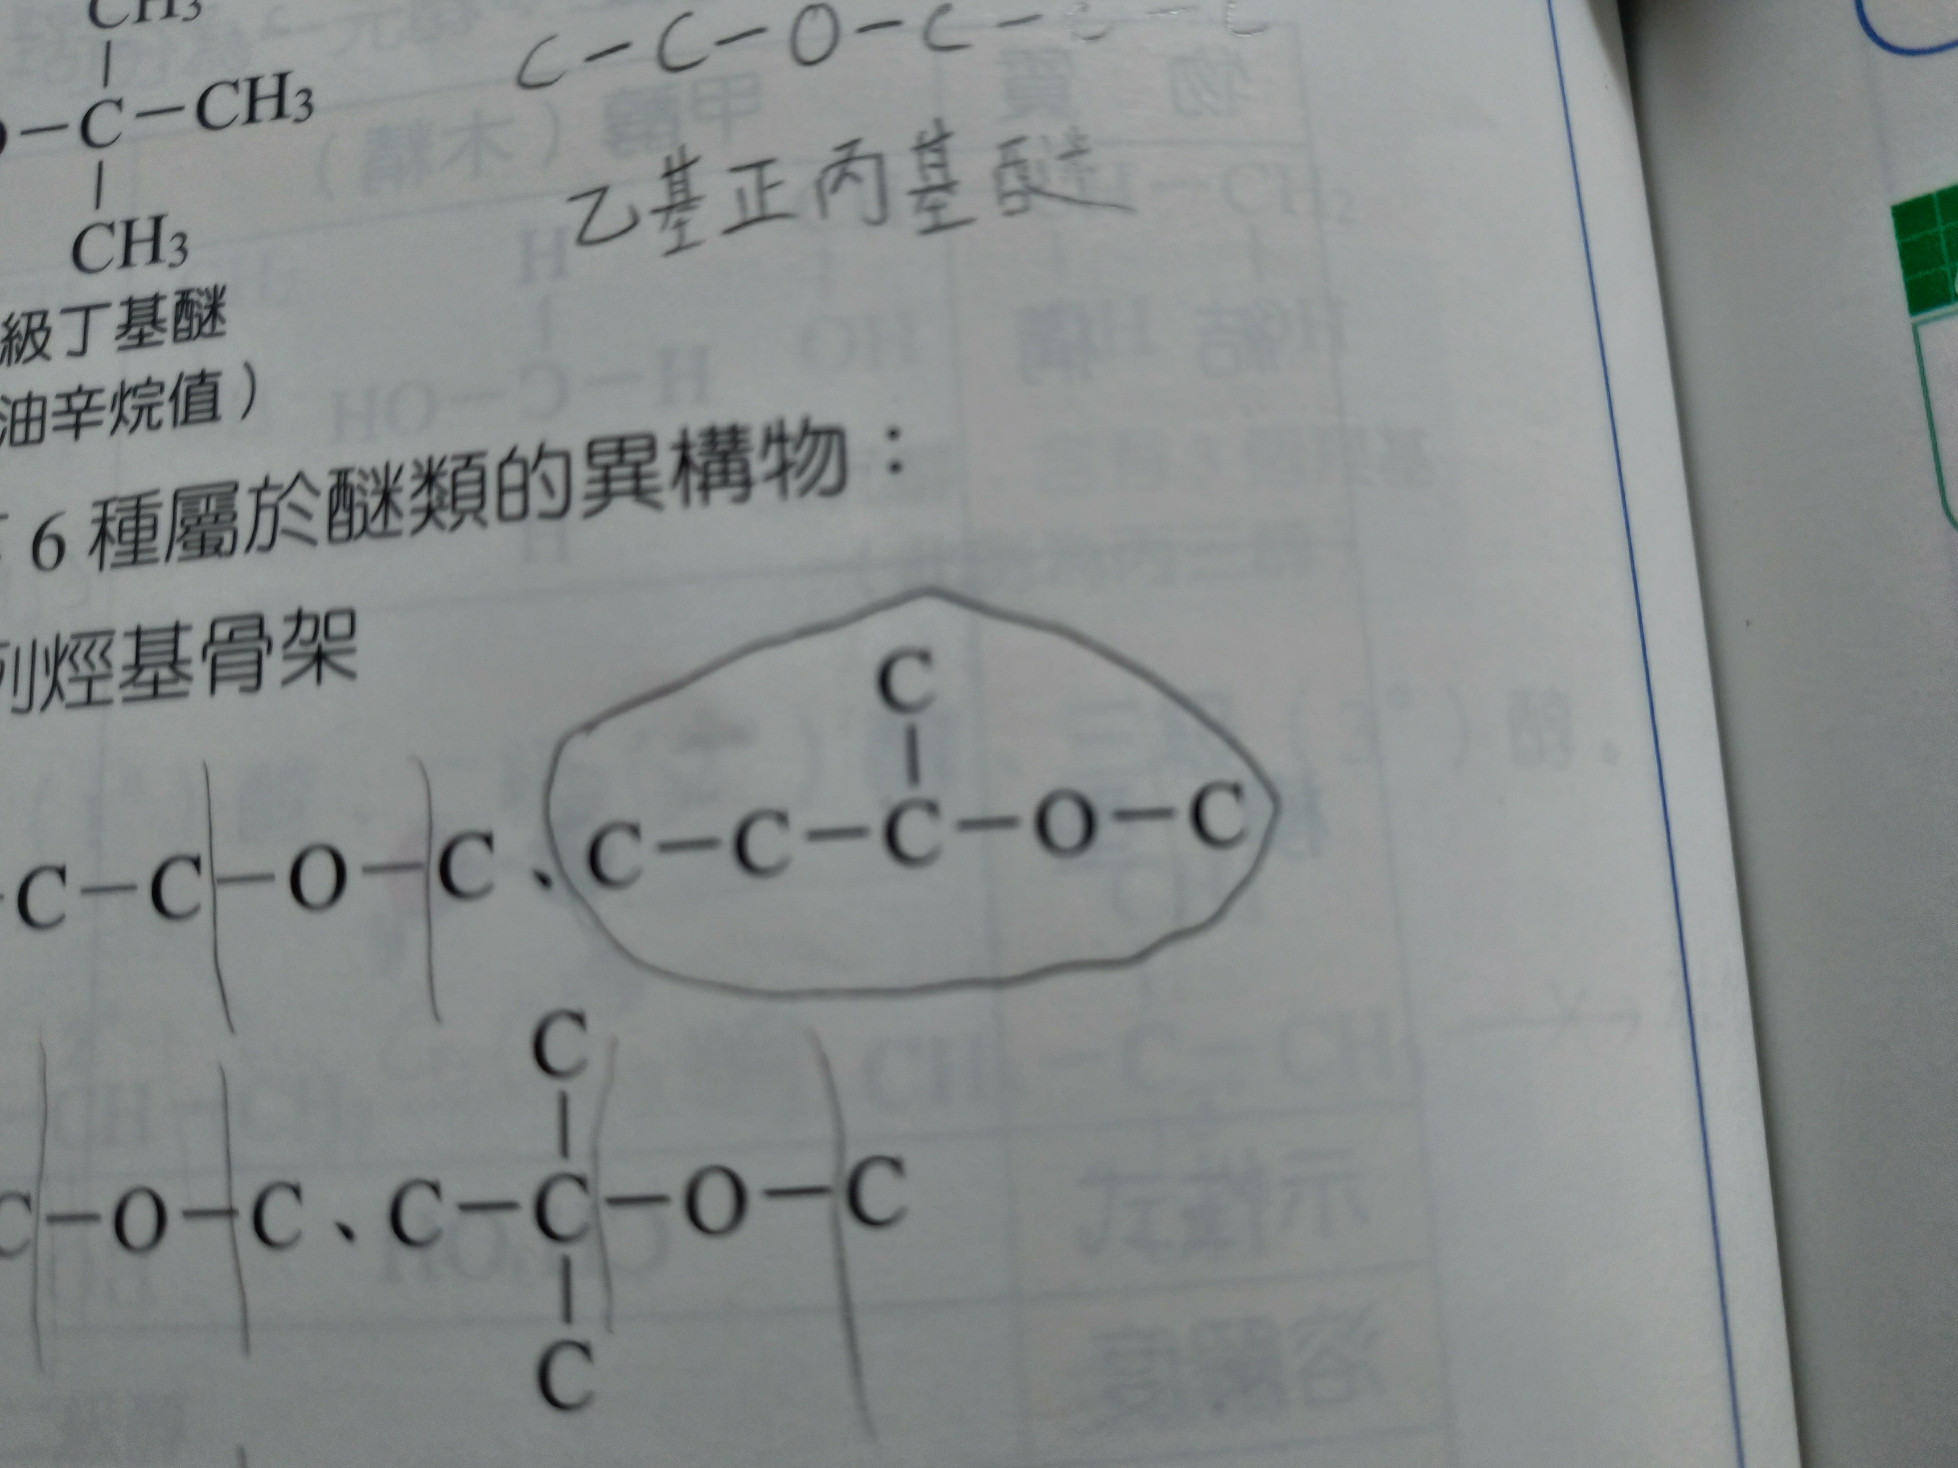 CH3
C-C-O-C-
-C-CH3
CH3
乙基正丙基醚
級丁基醚
油辛烷值）
6 種屬於醚類的異構物：
列烴基骨架
C
C-C-O-C、C-C-C-O-C
C
C-O-C、C-C-O-C
C